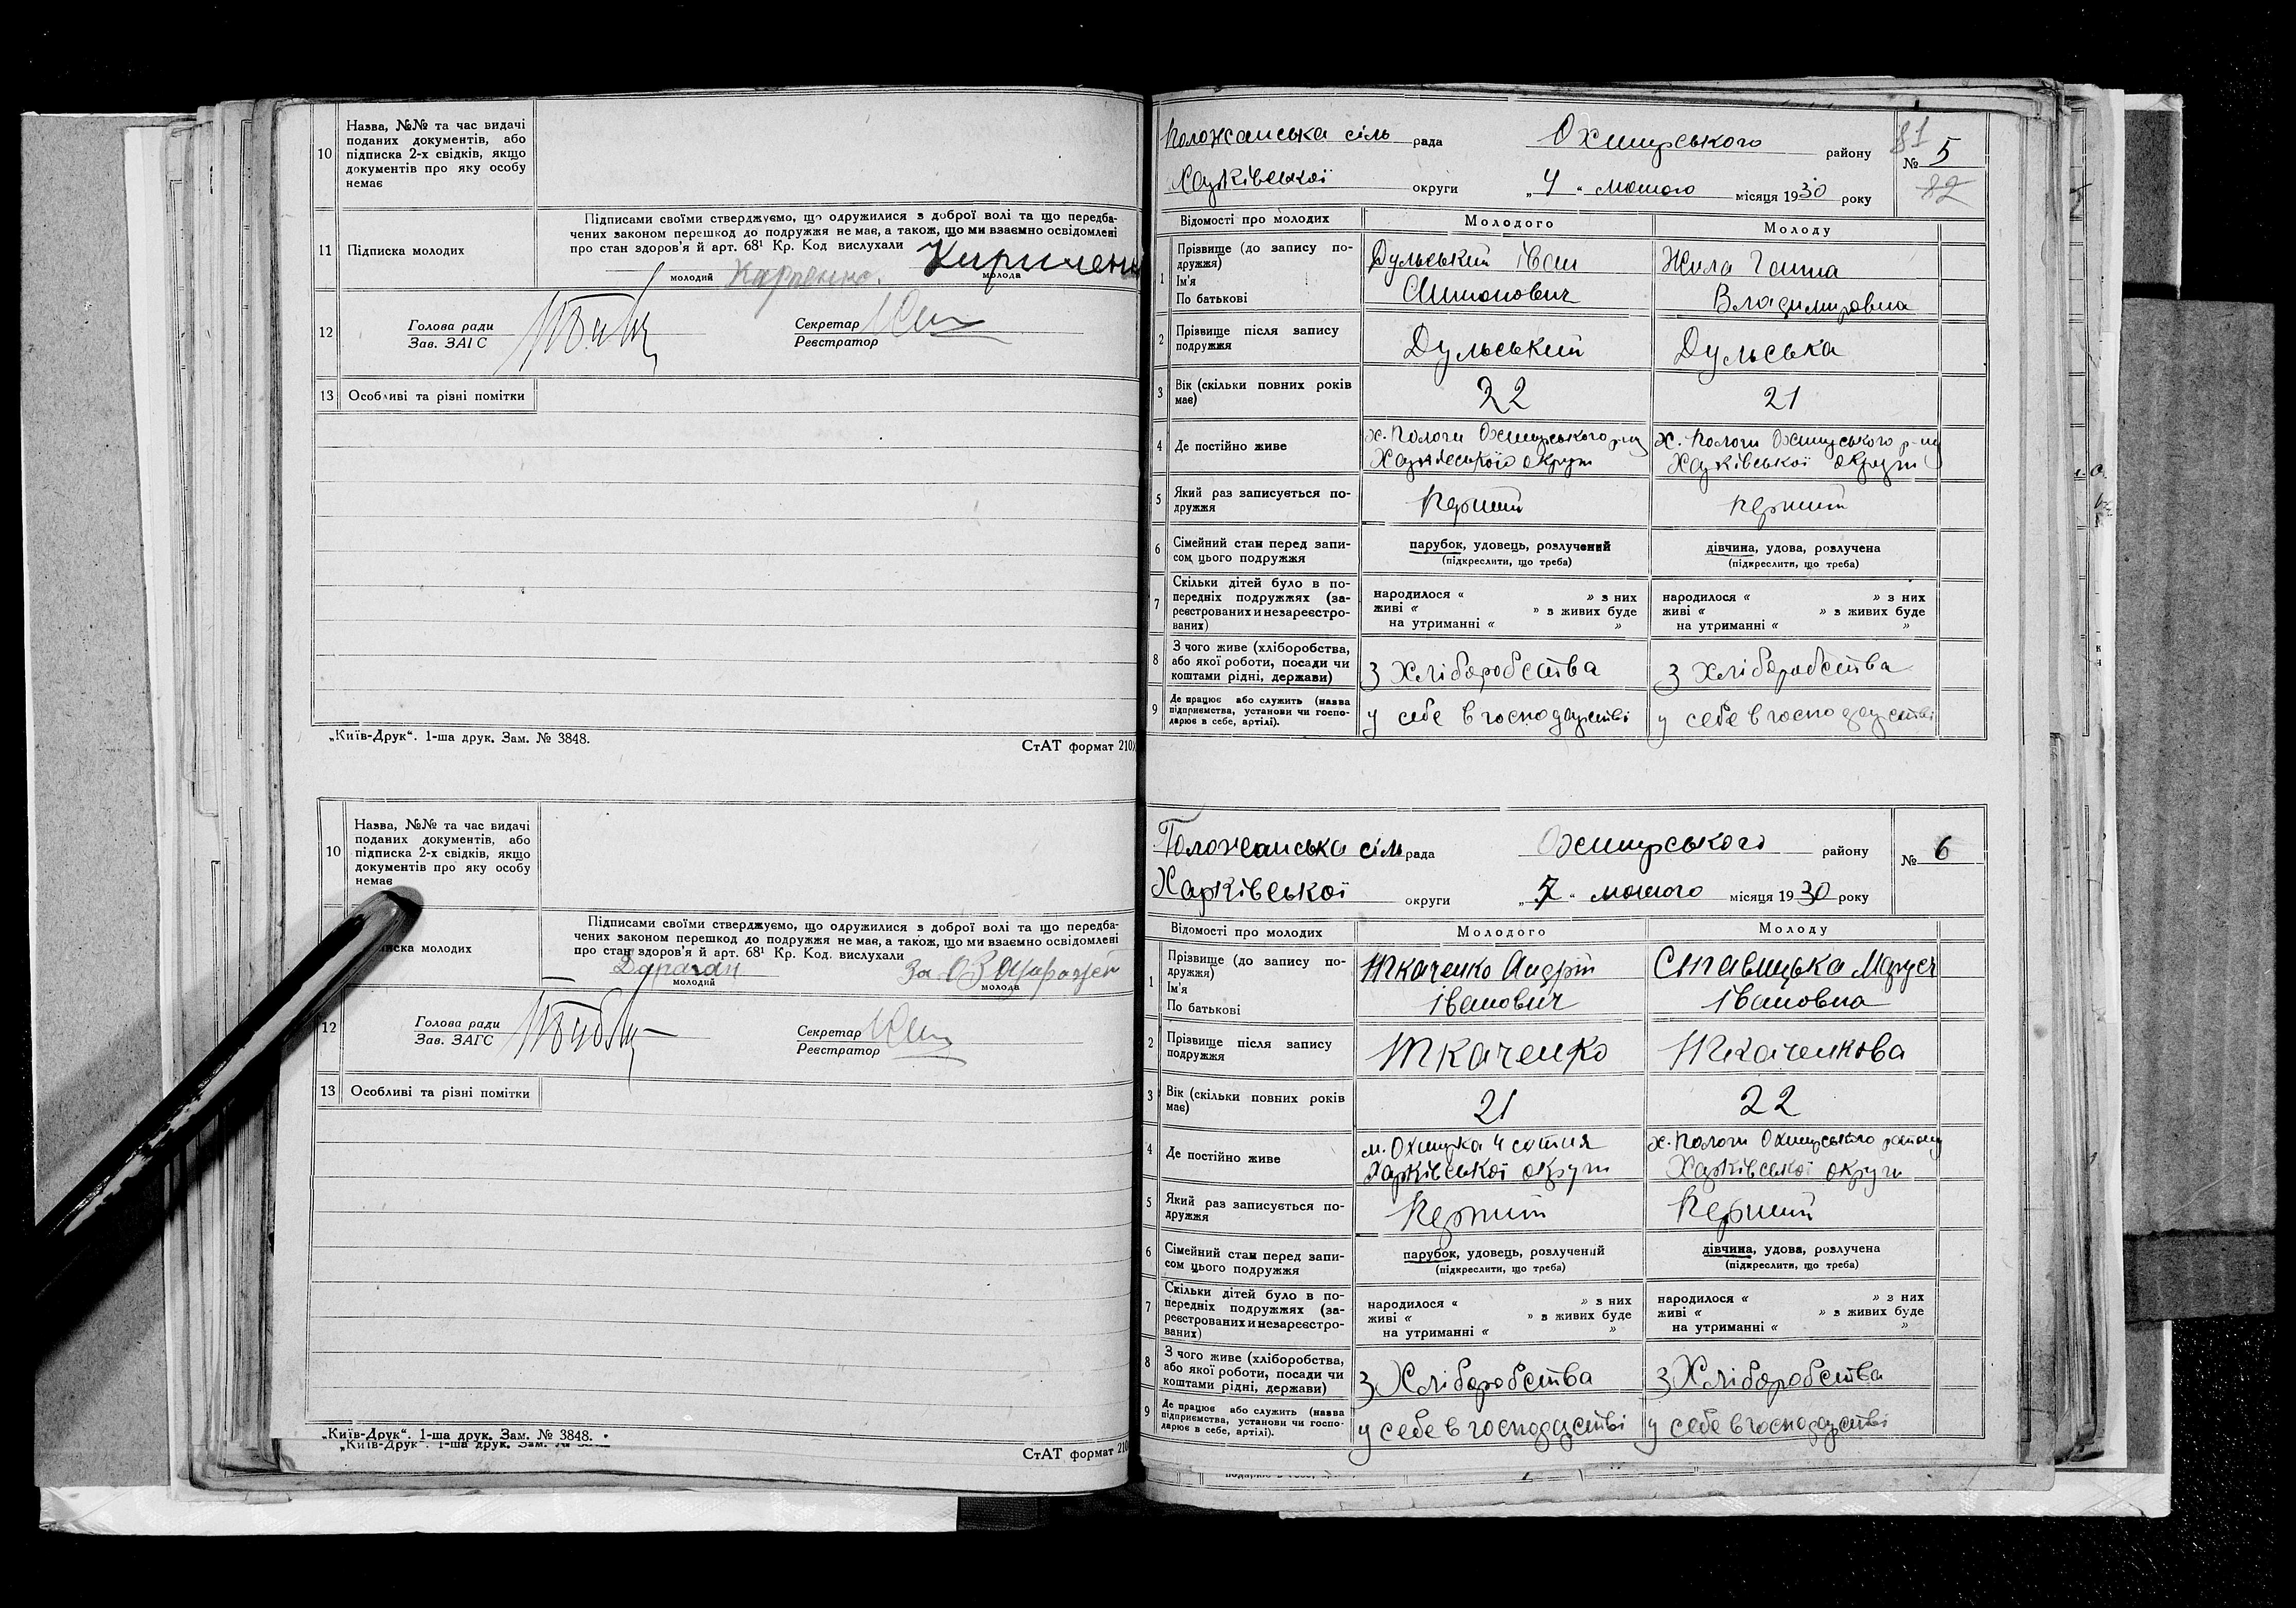 10
Назва, №№ та час видачі
поданих документів, або
підписка 2-х свідків, якщо
документів про яку особу
немає
11
Підписка молодих
Підписами своїми стверджуємо, що одружилися з доброї волі та що передба-
чених законом перешкод до подружжя не має, а також, що ми взаємно освідомлені
про стан здоров'я й арт. 68¹ Кр. Код вислухали
молодий Карпенко.
молода
12
Голова ради
Зав. ЗАГС
Секретар
Реєстратор
13 Особливі та різні помітки
„Київ-Друк“. 1-ша друк. Зам. № 3848.
СтАТ формат 210
10
Назва, №№ та час видачі
поданих документів, або
підписка 2-х свідків, якщо
документів про яку особу
немає
иска молодих
Підписами своїми стверджуємо, що одружилися з доброї волі та що передба-
чених законом перешкод до подружжя не має, а також, що ми взаємно освідомлені
про стан здоров'я й арт. 68¹ Кр. Код. вислухали
молодий
молода
12
Голова ради
Зав. ЗАГС
Секретар
Реєстратор
13 Особливі та різні помітки
„Київ-Друк“. 1-ша друк. Зам. № 3848.
„Київ-Друк“. 1-ша друк. Зам. №
СтАТ формат 210
Положанська сіль рада Охтирського району
81
№ 5
82
Харківської округи „4“ лютого місяця 1930 року
Відомості про молодих Молодого Молоду
1
Прізвище (до запису по-
дружжя)
Ім'я
По батькові
Дульський Іван
Антонович
Жила Ганна
Владимировна
2
Прізвище після запису
подружжя
Дульський
Дульська
3
Вік (скільки повних років
має)
22
21
4 Де постійно живе
х. Пологи Охтирського р-ну
Харківської округи
х. Пологи Охтирського р-ну
Харківської округи
5
Який раз записується по-
дружжя
Перший
перший
6
Сімейний стан перед запи-
сом цього подружжя
парубок, удовець, розлучений
(підкреслити, що треба)
дівчина, удова, розлучена
(підкреслити, що треба)
7
Скільки дітей було в по-
передніх подружжях (за-
реєстрованих и незареєстро-
ваних)
народилося « » з них
живі « » з живих буде
на утриманні « »
народилося « » з них
живі « » з живих буде
на утриманні « »
8
З чого живе (хліборобства,
або якої роботи, посади чи
коштами рідні, держави)
З хліборобства
З хліборобства
9
Де працює або служить (назва
підприємства, установи чи госпо-
дарює в себе, артілі).
у себе в господарстві
у себе в господарстві
Положанська сіль рада Охтирського району
№ 6
Харківської округи „7“ лютого місяця 1930 року
Відомості про молодих Молодого Молоду
1
Прізвище (до запису по-
дружжя)
Ім'я
По батькові
Ткаченко Андрій
Іванович
Ставицька Маруся
Івановна
2
Прізвище після запису
подружжя
Ткаченко
Ткаченкова
3
Вік (скільки повних років
має)
21
22
4 Де постійно живе
м. Охтирка 4 сотня
Харківської округи
х. Пологи Охтирського району
Харківської округи
5
Який раз записується по-
дружжя
Перший
Перший
6
Сімейний стан перед запи-
сом цього подружжя
парубок, удовець, розлучений
(підкреслити, що треба)
дівчина, удова, розлучена
(підкреслити, що треба)
7
Скільки дітей було в по-
передніх подружжях (за-
реєстрованих и незареєстро-
ваних)
народилося « » з них
живі « » з живих буде
на утриманні « »
народилося « » з них
живі « » з живих буде
на утриманні « »
8
З чого живе (хліборобства,
або якої роботи, посади чи
коштами рідні, держави)
З Хліборобства
З Хліборобства
9
Де працює або служить (назва
підприємства, установи чи госпо-
дарює в себе, артілі).
у себе в господарстві
у себе в господарстві